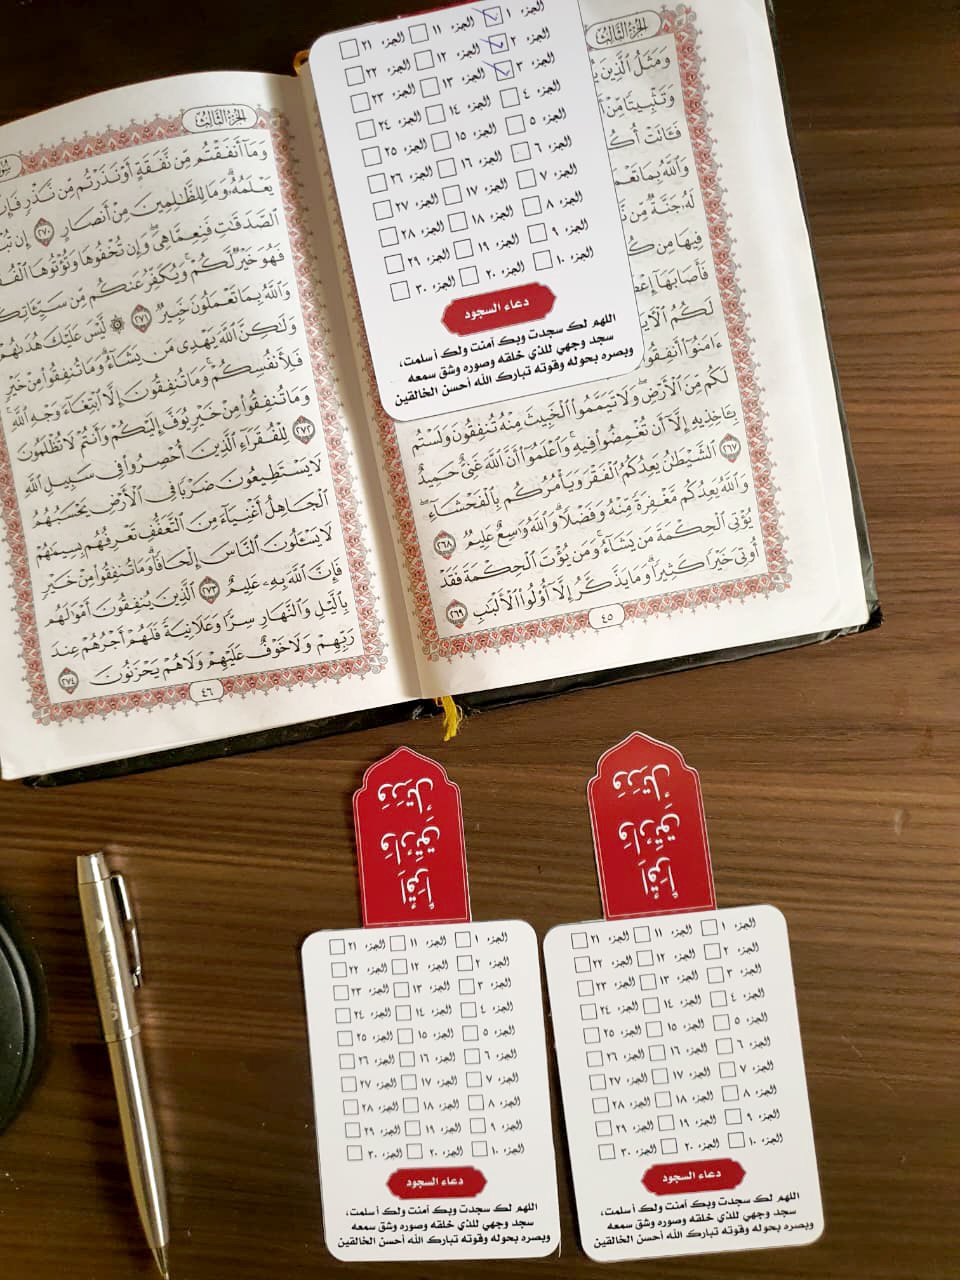 الجزء ١ الجزء ١١ الجزء ٢١
الجزء ٢ الجزء ١٢ الجزء ٢٢
الجزء ٣ الجزء ١٣ الجزء ٢٣
الجزء ٤ الجزء ١٤ الجزء ٢٤
الجزء ٥ الجزء ١٥ الجزء ٢٥
الجزء ٦ الجزء ١٦ الجزء ٢٦
الجزء ٧ الجزء ١٧ الجزء ٢٧
الجزء ٨ الجزء ١٨ الجزء ٢٨
الجزء ٩ الجزء ١٩ الجزء ٢٩
الجزء ١٠ الجزء ٢٠ الجزء ٣٠
دعاء السجود
اللهم لك سجدت وبك آمنت ولك أسلمت،
سجد وجهي للذي خلقه وصوره وشق سمعه
وبصره بحوله وقوته تبارك الله أحسن الخالقين
الجزء الثالث
وَمَثَلُ ٱلَّذِينَ
وَتَثْبِيتًا مِّنْ
فَـَٔاتَتْ
وَٱللَّهُ بِمَا
لَهُۥ جَنَّةٌ مِّن
فِيهَا مِن
فَأَصَابَهَآ
لَكُمُ
ءَامَنُوٓا۟ أَنفِقُوا۟
لَكُم مِّنَ ٱلْأَرْضِ وَلَا تَيَمَّمُوا۟ ٱلْخَبِيثَ مِنْهُ تُنفِقُونَ وَلَسْتُم
بِـَٔاخِذِيهِ إِلَّآ أَن تُغْمِضُوا۟ فِيهِ وَٱعْلَمُوٓا۟ أَنَّ ٱللَّهَ غَنِىٌّ حَمِيدٌ
٢٦٧ ٱلشَّيْطَٰنُ يَعِدُكُمُ ٱلْفَقْرَ وَيَأْمُرُكُم بِٱلْفَحْشَآءِ
وَٱللَّهُ يَعِدُكُم مَّغْفِرَةً مِّنْهُ وَفَضْلًا وَٱللَّهُ وَٰسِعٌ عَلِيمٌ ٢٦٨
يُؤْتِى ٱلْحِكْمَةَ مَن يَشَآءُ وَمَن يُؤْتَ ٱلْحِكْمَةَ فَقَدْ
أُوتِىَ خَيْرًا كَثِيرًا وَمَا يَذَّكَّرُ إِلَّآ أُو۟لُوا۟ ٱلْأَلْبَٰبِ ٢٦٩
٤٥
الجزء الثالث
وَمَآ أَنفَقْتُم مِّن نَّفَقَةٍ أَوْ نَذَرْتُم مِّن نَّذْرٍ
يَعْلَمُهُۥ وَمَا لِلظَّٰلِمِينَ مِنْ أَنصَارٍ ٢٧٠ إِن
ٱلصَّدَقَٰتِ فَنِعِمَّا هِىَ وَإِن تُخْفُوهَا وَتُؤْتُوهَا
فَهُوَ خَيْرٌ لَّكُمْ وَيُكَفِّرُ عَنكُم مِّن
وَٱللَّهُ بِمَا تَعْمَلُونَ خَبِيرٌ ٢٧١ لَّيْسَ عَلَيْكَ هُدَىٰهُمْ
وَلَٰكِنَّ ٱللَّهَ يَهْدِى مَن يَشَآءُ وَمَا تُنفِقُوا۟ مِنْ خَيْرٍ
فَلِأَنفُسِكُمْ وَمَا تُنفِقُونَ إِلَّا ٱبْتِغَآءَ وَجْهِ ٱللَّهِ
وَمَا تُنفِقُوا۟ مِنْ خَيْرٍ يُوَفَّ إِلَيْكُمْ وَأَنتُمْ لَا تُظْلَمُونَ
٢٧٢ لِلْفُقَرَآءِ ٱلَّذِينَ أُحْصِرُوا۟ فِى سَبِيلِ ٱللَّهِ
لَا يَسْتَطِيعُونَ ضَرْبًا فِى ٱلْأَرْضِ يَحْسَبُهُمُ
ٱلْجَاهِلُ أَغْنِيَآءَ مِنَ ٱلتَّعَفُّفِ تَعْرِفُهُم بِسِيمَٰهُمْ
لَا يَسْـَٔلُونَ ٱلنَّاسَ إِلْحَافًا وَمَا تُنفِقُوا۟ مِنْ خَيْرٍ
فَإِنَّ ٱللَّهَ بِهِۦ عَلِيمٌ ٢٧٣ ٱلَّذِينَ يُنفِقُونَ أَمْوَٰلَهُم
بِٱلَّيْلِ وَٱلنَّهَارِ سِرًّا وَعَلَانِيَةً فَلَهُمْ أَجْرُهُمْ عِندَ
رَبِّهِمْ وَلَا خَوْفٌ عَلَيْهِمْ وَلَا هُمْ يَحْزَنُونَ ٢٧٤
٤٦
اِقْرَأْ
وَارْتَقِ
وَرَتِّلْ
الجزء ١ الجزء ١١ الجزء ٢١
الجزء ٢ الجزء ١٢ الجزء ٢٢
الجزء ٣ الجزء ١٣ الجزء ٢٣
الجزء ٤ الجزء ١٤ الجزء ٢٤
الجزء ٥ الجزء ١٥ الجزء ٢٥
الجزء ٦ الجزء ١٦ الجزء ٢٦
الجزء ٧ الجزء ١٧ الجزء ٢٧
الجزء ٨ الجزء ١٨ الجزء ٢٨
الجزء ٩ الجزء ١٩ الجزء ٢٩
الجزء ١٠ الجزء ٢٠ الجزء ٣٠
دعاء السجود
اللهم لك سجدت وبك آمنت ولك أسلمت،
سجد وجهي للذي خلقه وصوره وشق سمعه
وبصره بحوله وقوته تبارك الله أحسن الخالقين
اِقْرَأْ
وَارْتَقِ
وَرَتِّلْ
الجزء ١ الجزء ١١ الجزء ٢١
الجزء ٢ الجزء ١٢ الجزء ٢٢
الجزء ٣ الجزء ١٣ الجزء ٢٣
الجزء ٤ الجزء ١٤ الجزء ٢٤
الجزء ٥ الجزء ١٥ الجزء ٢٥
الجزء ٦ الجزء ١٦ الجزء ٢٦
الجزء ٧ الجزء ١٧ الجزء ٢٧
الجزء ٨ الجزء ١٨ الجزء ٢٨
الجزء ٩ الجزء ١٩ الجزء ٢٩
الجزء ١٠ الجزء ٢٠ الجزء ٣٠
دعاء السجود
اللهم لك سجدت وبك آمنت ولك أسلمت،
سجد وجهي للذي خلقه وصوره وشق سمعه
وبصره بحوله وقوته تبارك الله أحسن الخالقين